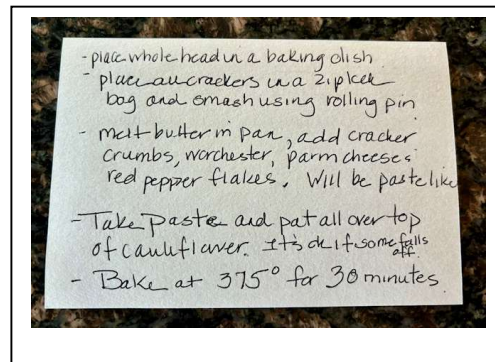 - place whole head in a baking dish
- place all crackers in a ziplock
bag and smash using rolling pin
- melt butter in pan, add cracker
crumbs, worchester, parm cheese &
red pepper flakes. Will be pastelike
- Take paste and pat all over top
of cauliflower. It's ok if some falls
off.
- Bake at 375° for 30 minutes